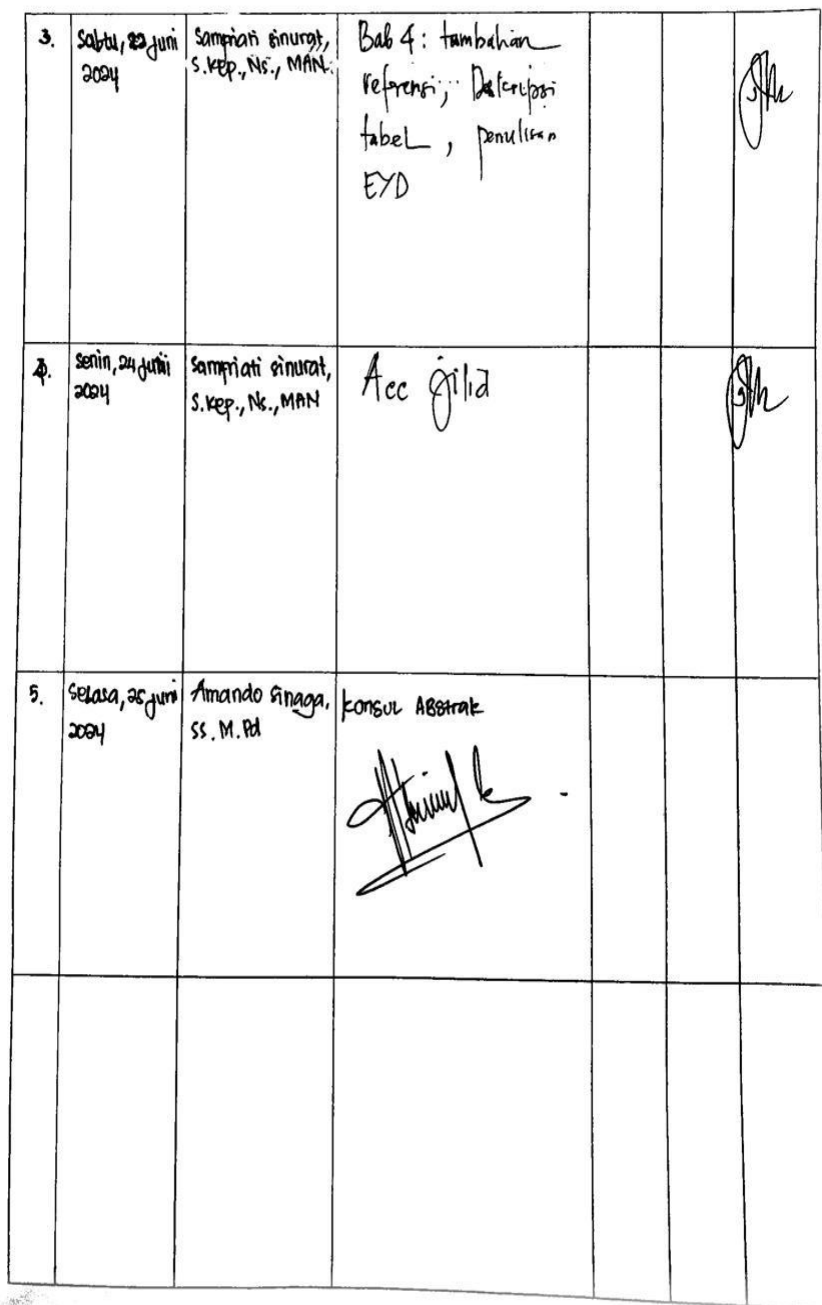 3.
Sabtu, 22 Juni
2024
Sampriati sinurat,
S.Kep., Ns., MAN.
Bab 4: tambahan
referensi, Deskripsi
tabel, penulisan
EYD
4.
Senin, 24 Juni
2024
Sampriati sinurat,
S.Kep., Ns., MAN
Acc jilid
5.
Selasa, 25 Juni
2024
Amando sinaga,
SS. M. Pd
Konsul ABStrak